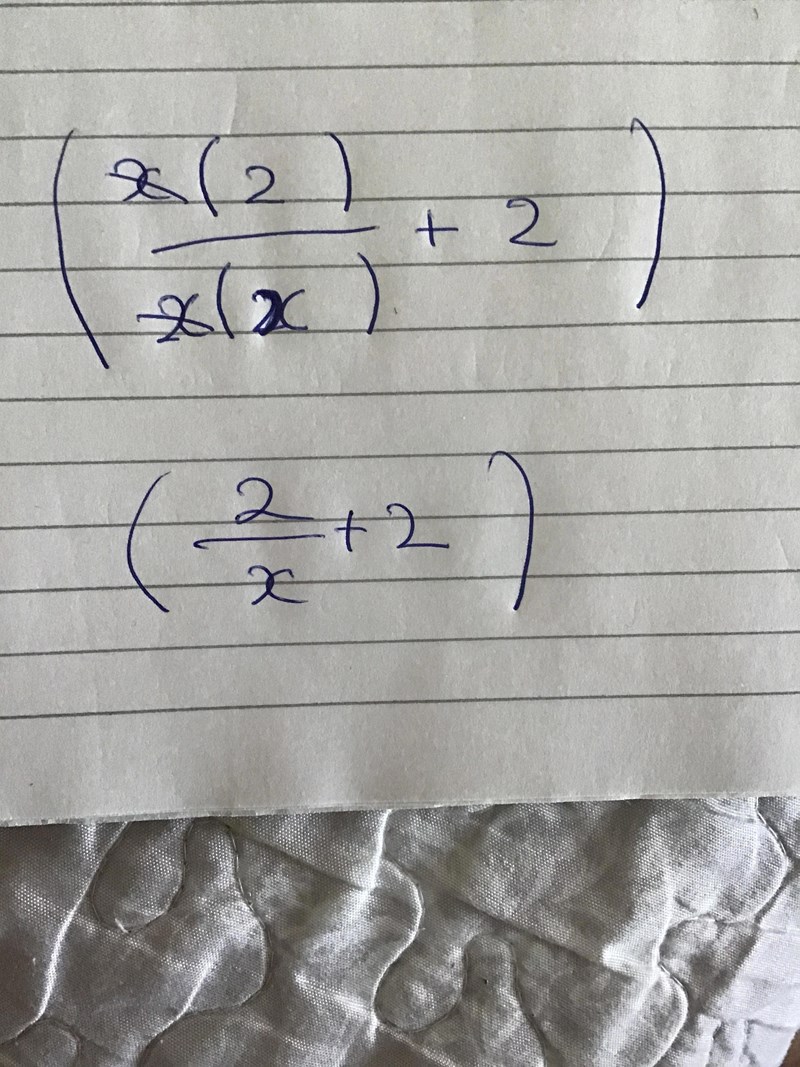 ( x(2) / x(x) + 2 )
( 2 / x + 2 )